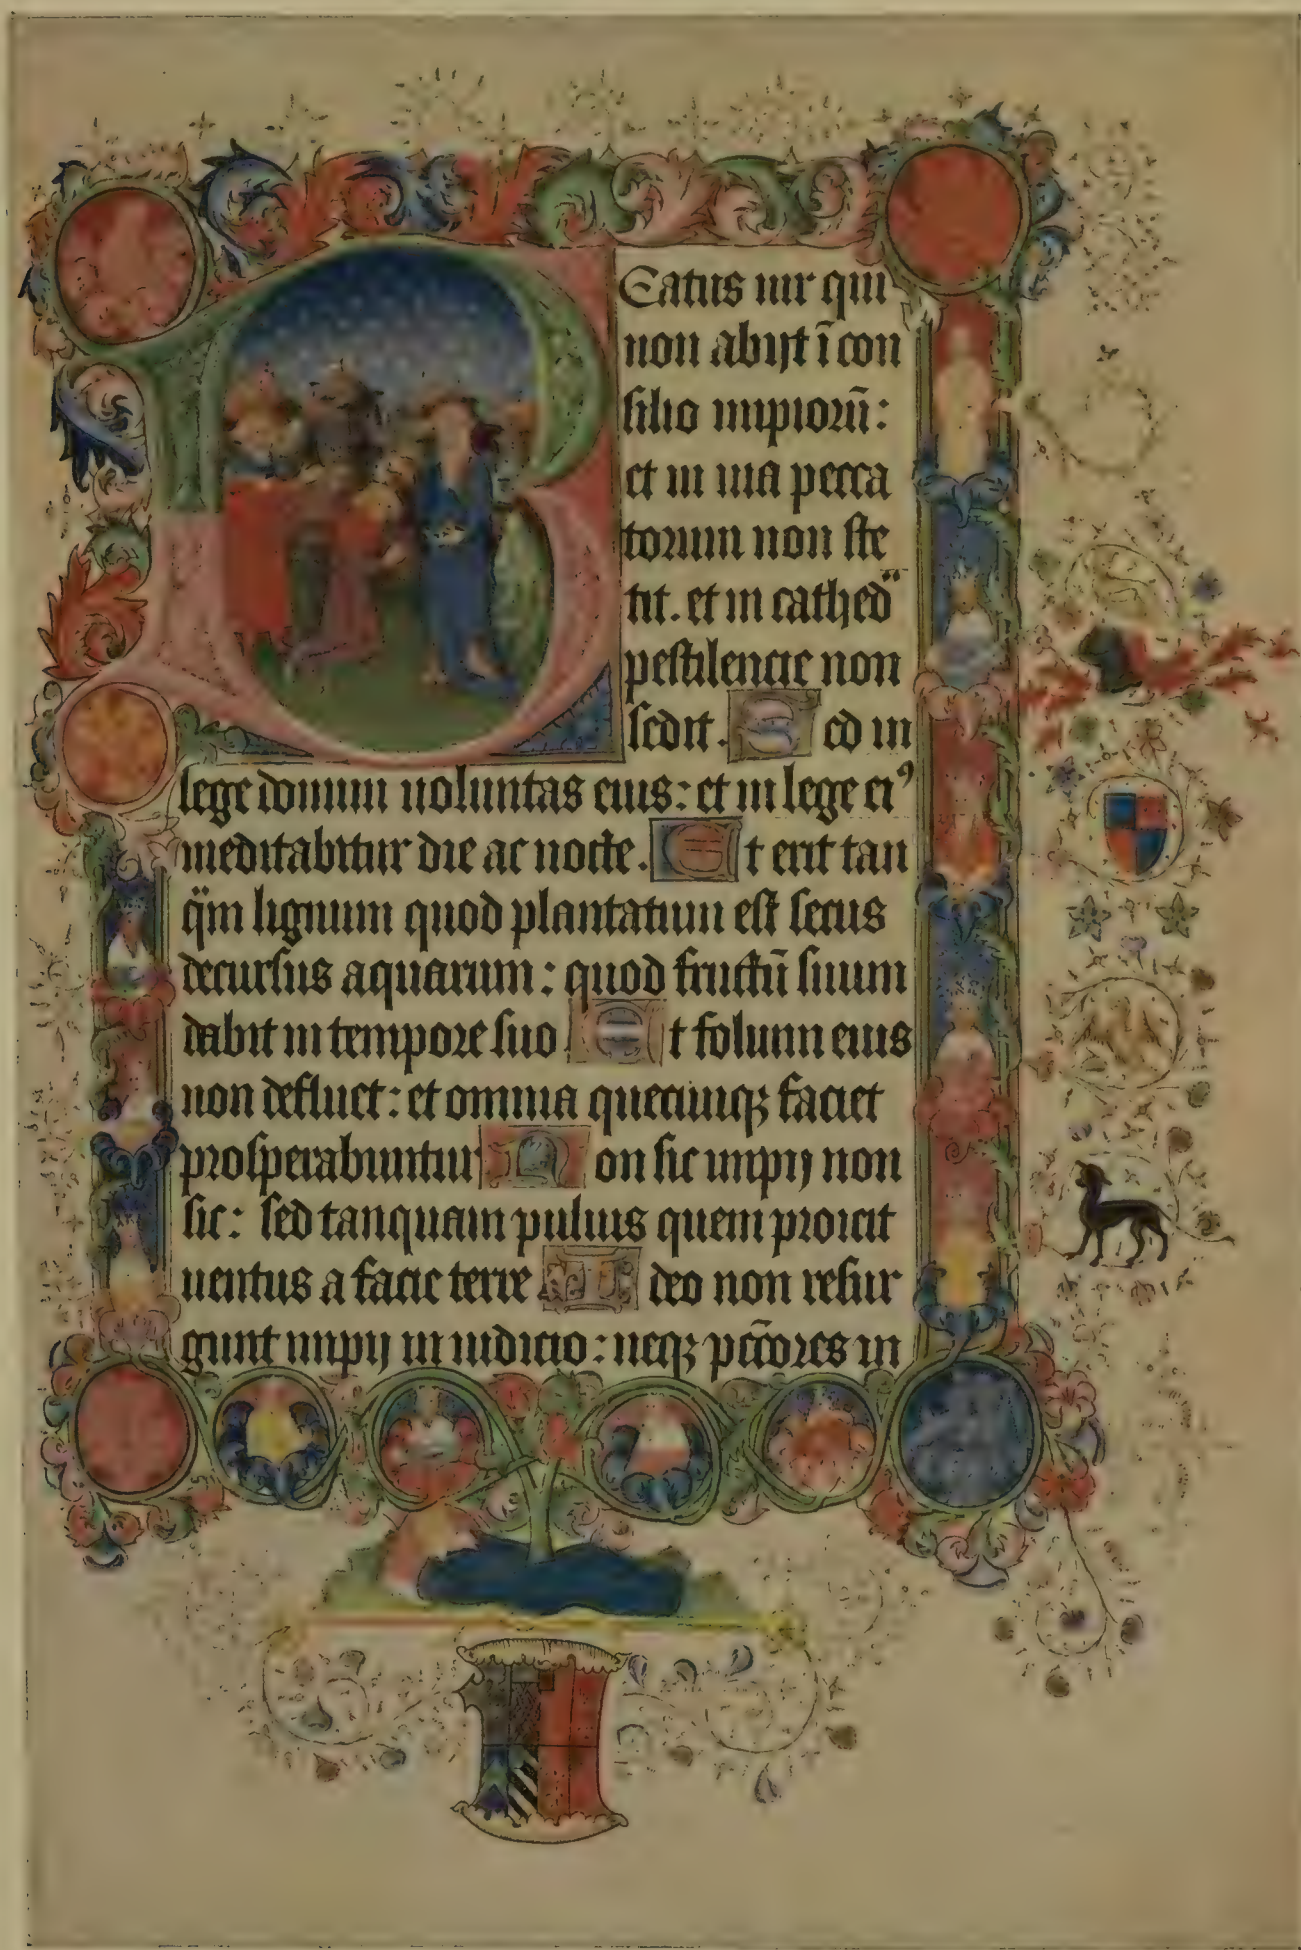 Beatus uir qui
non abijt ī con
silio impiorū:
et in uia pecca
torum non ste
tit. et in cathed̈
pestilencie non
sedit. Sed in
lege domini uoluntas eius: et in lege eiꝰ
meditabitur die ac nocte. Et erit tan
q̈m lignum quod plantatum est secus
decursus aquarum: quod fructū suum
dabit in tempore suo Et folium eius
non defluet: et omnia quecumqꝫ faciet
prosperabuntur Non sic impij non
sic: sed tanquam puluis quem proicit
uentus a facie terre Ideo non resur
gunt impij in iudicio: neqꝫ pc̄cores in